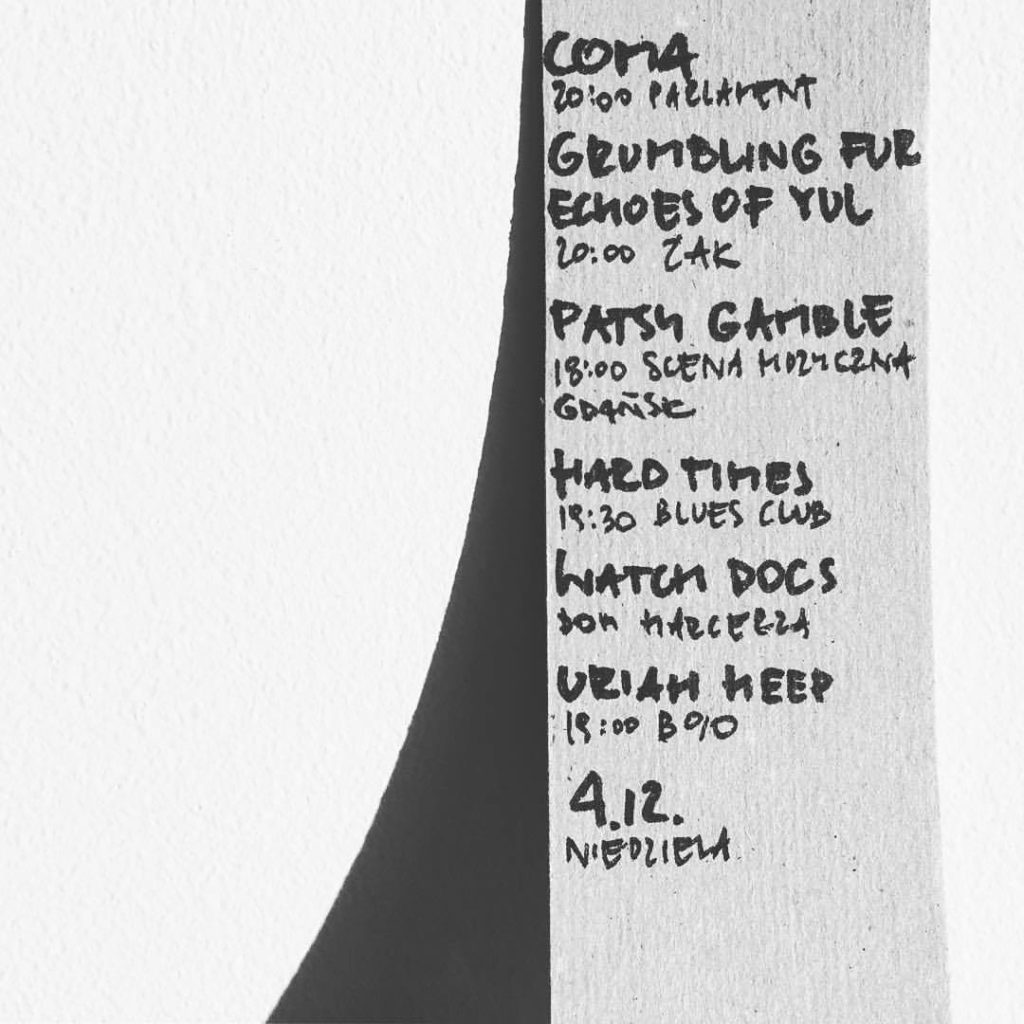 COMA
20:00 PARLAMENT
GRUMBLING FUR
ECHOES OF YUL
20:00 ŻAK
PATSY GAMBLE
18:00 SCENA MUZYCZNA
GDAŃSK
HARD TIMES
19:30 BLUES CLUB
WATCH DOCS
DOM MARCERZA
URIAH HEEP
19:00 B90
4.12.
NIEDZIELA